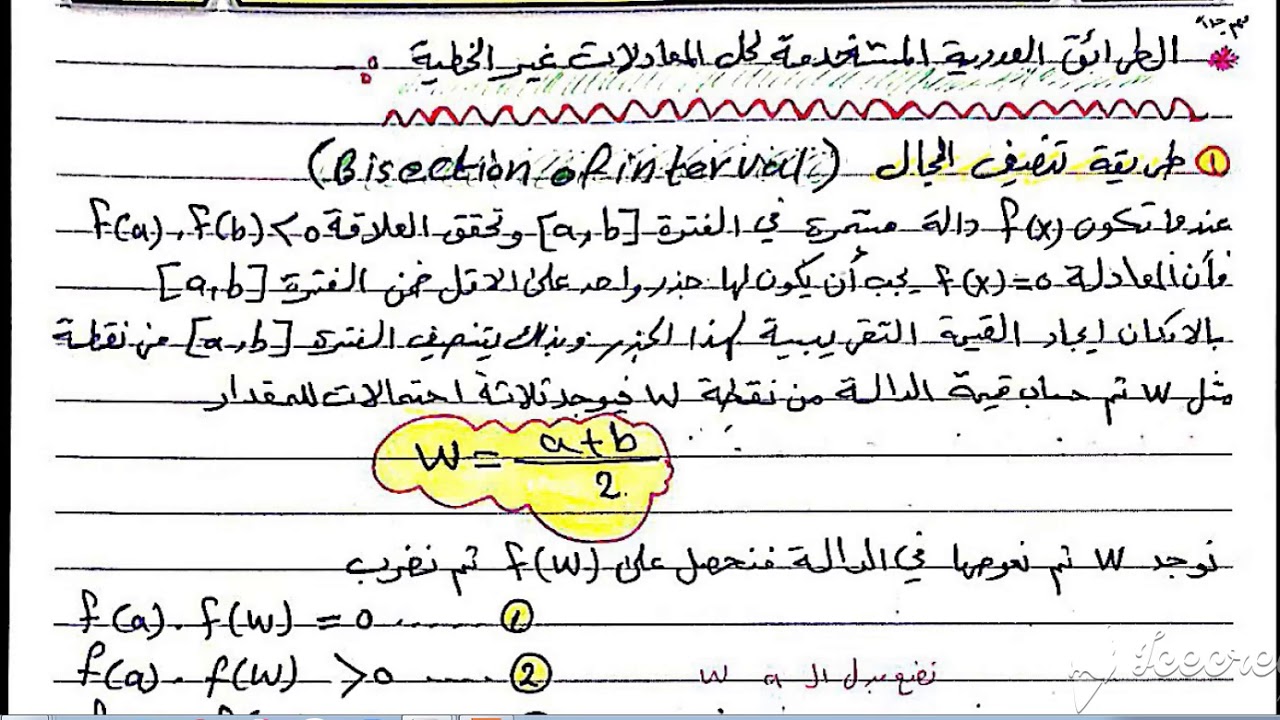 الطرائق العددية المستخدمة لحل المعادلات غير الخطية :
① طريقة تنصيف المجال (Bisection of interval)
عندما تكون f(x) دالة مستمرة في الفترة [a,b] وتحقق العلاقة f(a).f(b)<0
فأن المعادلة f(x)=0 يجب أن يكون لها جذر واحد على الاقل ضمن الفترة [a,b]
بالامكان ايجاد القيمة التقريبية لهذا الجذر وبذلك يتنصيف الفترة [a,b] من نقطة
مثل W ثم حساب قيمة الدالة من نقطة W فيوجد ثلاثة احتمالات للمقدار
W = a+b / 2
نوجد W ثم نعوضها في الدالة فنحصل على f(W) ثم نضرب
f(a). f(W) = 0 ........ ①
f(a). f(W) >0 ...... ② نضع بدل ال a W